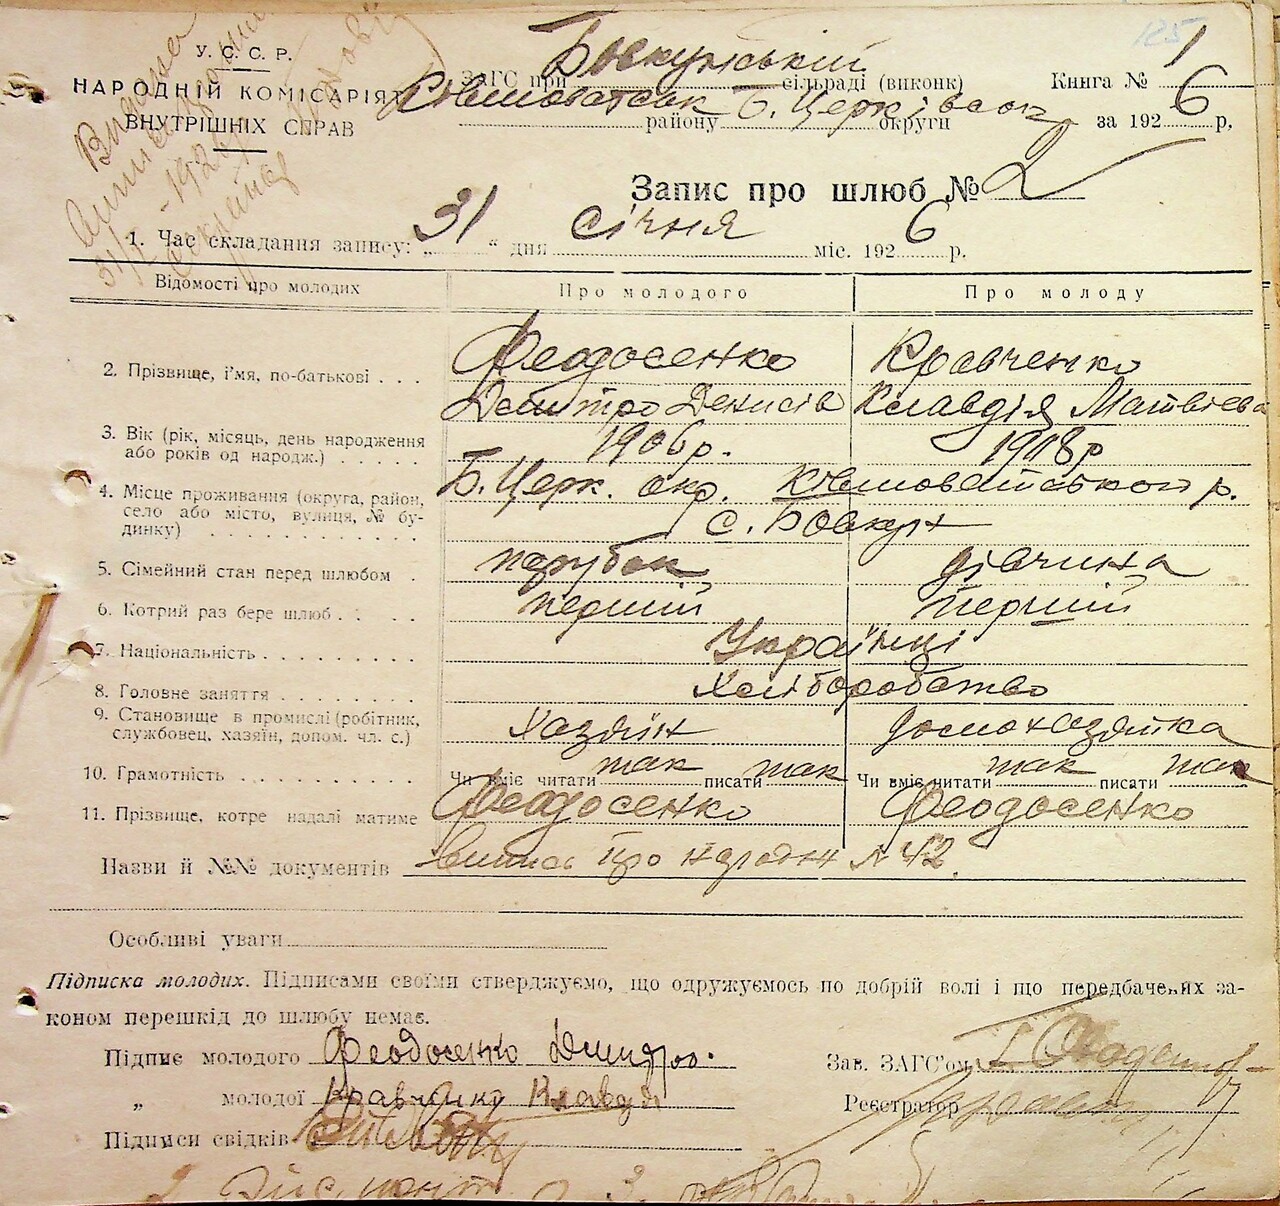 125
У. С. С. Р.
НАРОДНІЙ КОМІСАРІЯТ
ВНУТРІШНІХ СПРАВ
Видана
ЗАГС при Бовкунський сільраді (виконк) Книга № 1
району Б. Церківськ округи за 1926 р.
Запис про шлюб № 2
1. Час складання запису: „31“ дня січня міс. 1926 р.
Відомості про молодих Про молодого Про молоду
2. Прізвище, і'мя, по-батькові . . . Феодосенко Кравченко
Дмитро Денисів Клавдія Матвієва
3. Вік (рік, місяць, день народження або років од народж.) 1906 р. 1908 р
4. Місце проживання (округа, район, село або місто, вулиця, № будинку) Б. Церк. окр. р.
с. Бовкун
5. Сімейний стан перед шлюбом . парубок дівчина
6. Котрий раз бере шлюб . . . . перший перший
7. Національність . . . . . . . . . Українці
8. Головне заняття . . . . . . . . Хліборобство
9. Становище в промислі (робітник, службовец, хазяїн, допом. чл. с.) Хазяїн домохазяйка
10. Грамотність . . . . . . . . . . Чи вміє читати так писати так Чи вміє читати так писати так
11. Прізвище, котре надалі матиме Феодосенко Феодосенко
Назви й №№ документів випис про народж № 42
Особливі уваги
Підписка молодих. Підписами своїми стверджуємо, що одружуємось по добрій волі і що передбачених за-
коном перешкід до шлюбу немає.
Підпис молодого Феодосенко Дмитро. Зав. ЗАГС'ом
„ молодої Клавдя Реєстратор
Підписи свідків